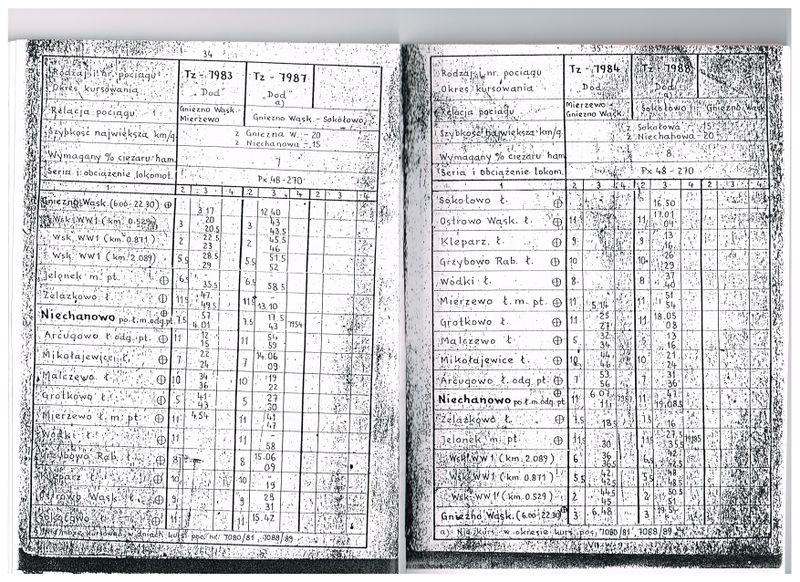 34
Rodzaj i nr. pociągu Tz - 7983 Tz - 7987
Okres kursowania „Dod" „Dod" a)
Relacja pociągu Gniezno Wąsk. Mierzewo Gniezno Wąsk. - Sokołowo
Szybkość największa km/g. z Gniezna W. - 20
z Niechanowa - 15
Wymagany % ciężaru ham. 7
Seria i obciążenie lokomot. Px 48 - 270
1 2 3 4 2 3 4 2 3 4
Gniezno Wąsk. (6.00 - 22.30) 3.17 12.40
Wsk. WW1 (km. 0.529) 3 20 20.5 3 43 43.5
Wsk. WW1 (km. 0.871) 2 22.5 23 2 45.5 46
Wsk. WW1 (km. 2.089) 5.5 28.5 29 5.5 51.5 52
Jelonek m. pt. 6.5 35.5 6.5 58.5
Żelazkowo ł. 11.5 47 49.5 11.5 13.10
Niechanowo po ł.m.odg.pt. 7.5 57 4.01 7.5 17.5 43
Arcugowo ł. odg. pt. 11 12 15 11 54 59
Mikołajewice ł. 7 22 24 7 14.06 09
Malczewo ł. 10 34 36 10 19 22
Grotkowo ł. 5 41 43 5 27 30
Mierzewo ł. m. pt. 11 4.54 11 41 47
Wódki ł. 11 11 58
Grzybowo Rab. ł. 8 8 15.06 09
Kleparz ł. 10 10 19
Ostrowo Wąsk. ł. 9 9 28 31
Sokołowo ł. 11 11 15.42
35
Rodzaj i nr. pociągu Tz - 7984 Tz - 7988
Okres kursowania „Dod" „Dod" a)
Relacja pociągu Mierzewo - Gniezno Wąsk. Sokołowo - Gniezno Wąsk.
Szybkość największa km/g. z Sokołowa - 15
z Niechanowa - 20
Wymagany % ciężaru ham. 8
Seria i obciążenie lokom. Px 48 - 270
1 2 3 4 2 3 4 2 3 4
Sokołowo ł. 16.50
Ostrowo Wąsk. ł. 11 11 17.01 04
Kleparz. ł. 9 9 13 16
Grzybowo Rab. ł. 10 10 26 29
Wódki ł. 8 8 37 40
Mierzewo ł. m. pt. 11 5.14 11 51 54
Grotkowo ł. 11 25 27 11 18.05 08
Malczewo ł. 5 32 34 5 13 16
Mikołajewice ł. 10 44 46 10 21 24
Arcugowo ł. odg. pt. 7 53 56 7 31 36
Niechanowo po ł.m.odg.pt. 11 6.07 11 11 47 19.08.5
Żelazkowo ł. 7.5 18.5 7.5 16
Jelonek m. pt. 11.5 30 11.5 27.5 35.5
Wsk. WW1 (km. 2.089) 6 36 36.5 42 42.5
Wsk. WW1 (km. 0.871) 5.5 42 42.5 5.5 48 48.5
Wsk. WW1 (km. 0.529) 2 44.5 45 2 50.5
Gniezno Wąsk. (6.00 - 22.30) 3 6.48 3 19.54
a) Nie kurs. w okresie kurs. poc. 7080/81, 7088/89